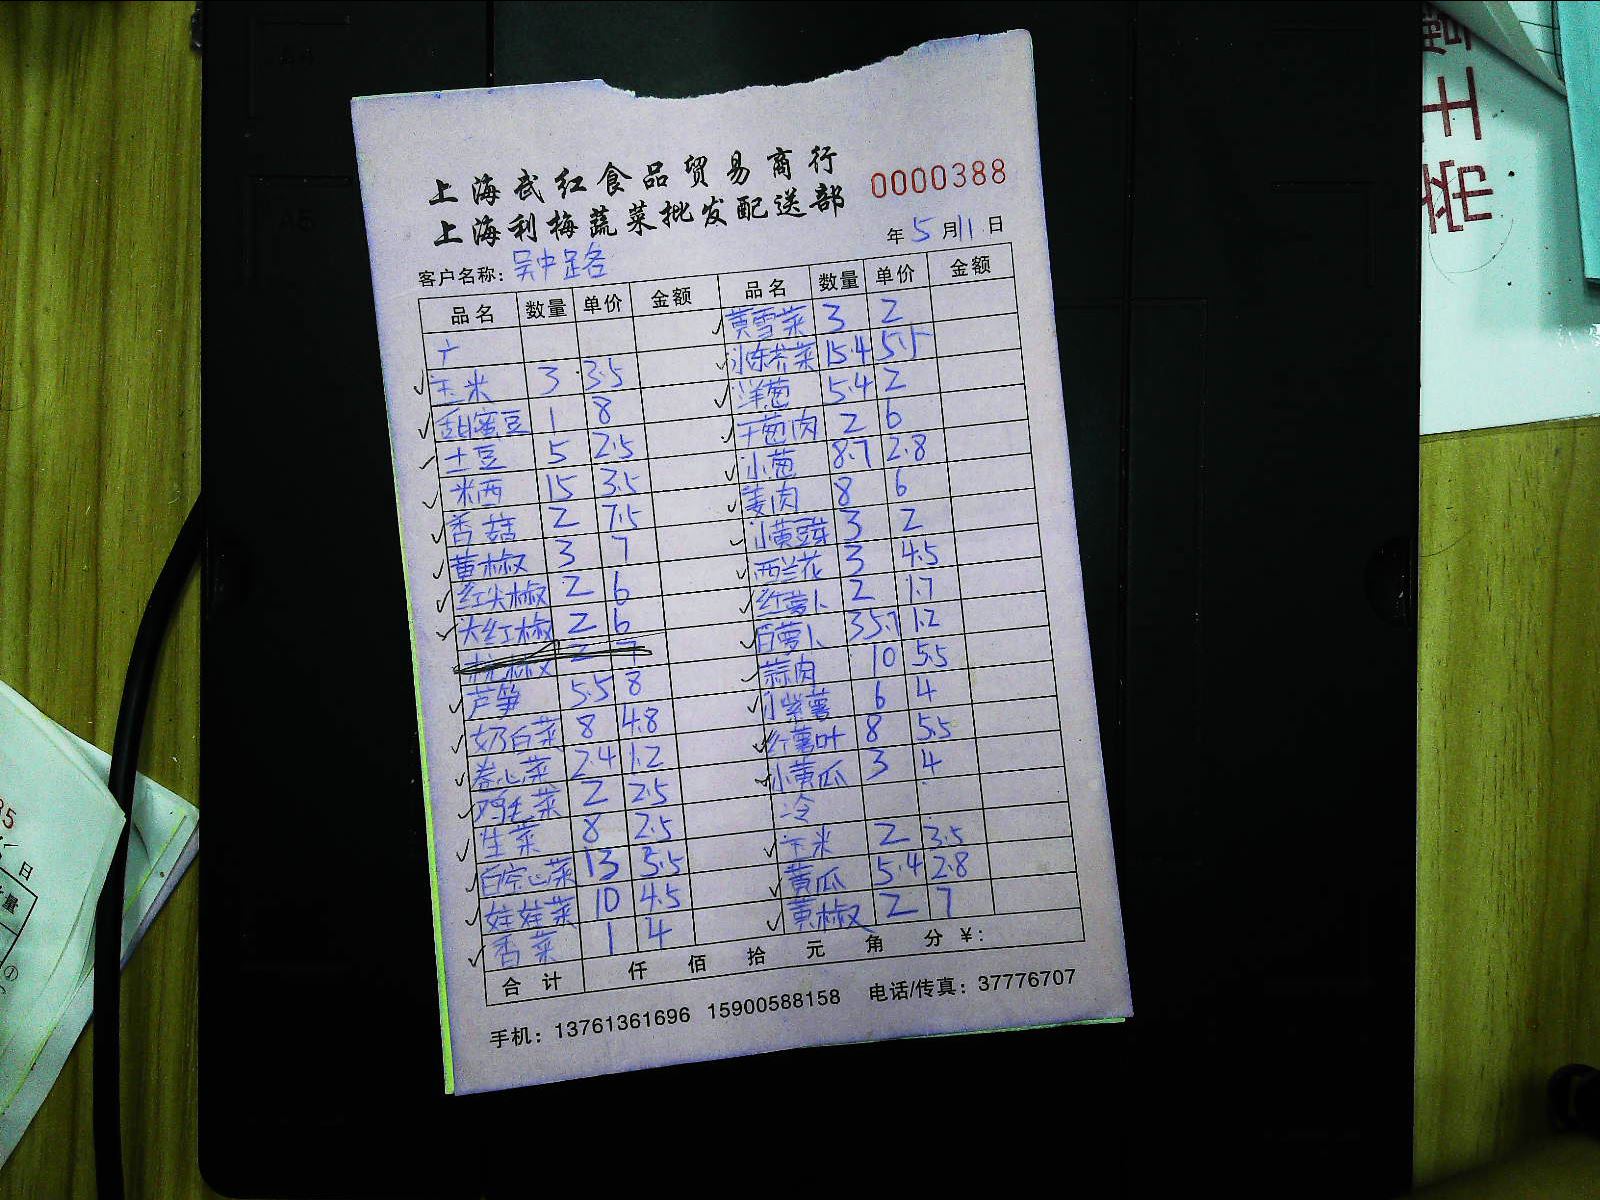 上海武红食品贸易商行
0000388
上海利梅蔬菜批发配送部
年 5 月 11 日
客户名称：吴中路
品名 数量 单价 金额
广
玉米 3 3.5
甜蜜豆 1 8
土豆 5 2.5
米西 15 3.5
香菇 2 7.5
黄椒 3 7
红尖椒 2 6
大红椒 2 6
芦笋 5.5 8
奶白菜 8 4.8
卷心菜 2.4 1.2
鸡毛菜 2 2.5
生菜 8 2.5
白空心菜 13 3.5
娃娃菜 10 4.5
香菜 1 4
品名 数量 单价 金额
黄雪菜 3 2
小东芥菜 15.4 5.5
洋葱 5.4 2
干葱肉 2 6
小葱 8.7 2.8
姜肉 8 6
小黄豆芽 3 2
西兰花 3 4.5
红萝卜 2 1.7
白萝卜 35.7 1.2
蒜肉 10 5.5
小紫薯 6 4
红薯叶 8 5.5
小黄瓜 3 4
冷
玉米 2 3.5
黄瓜 5.4 2.8
黄椒 2 7
合计 仟 佰 拾 元 角 分 ¥:
手机：13761361696 15900588158 电话/传真：37776707
帝王
日
量